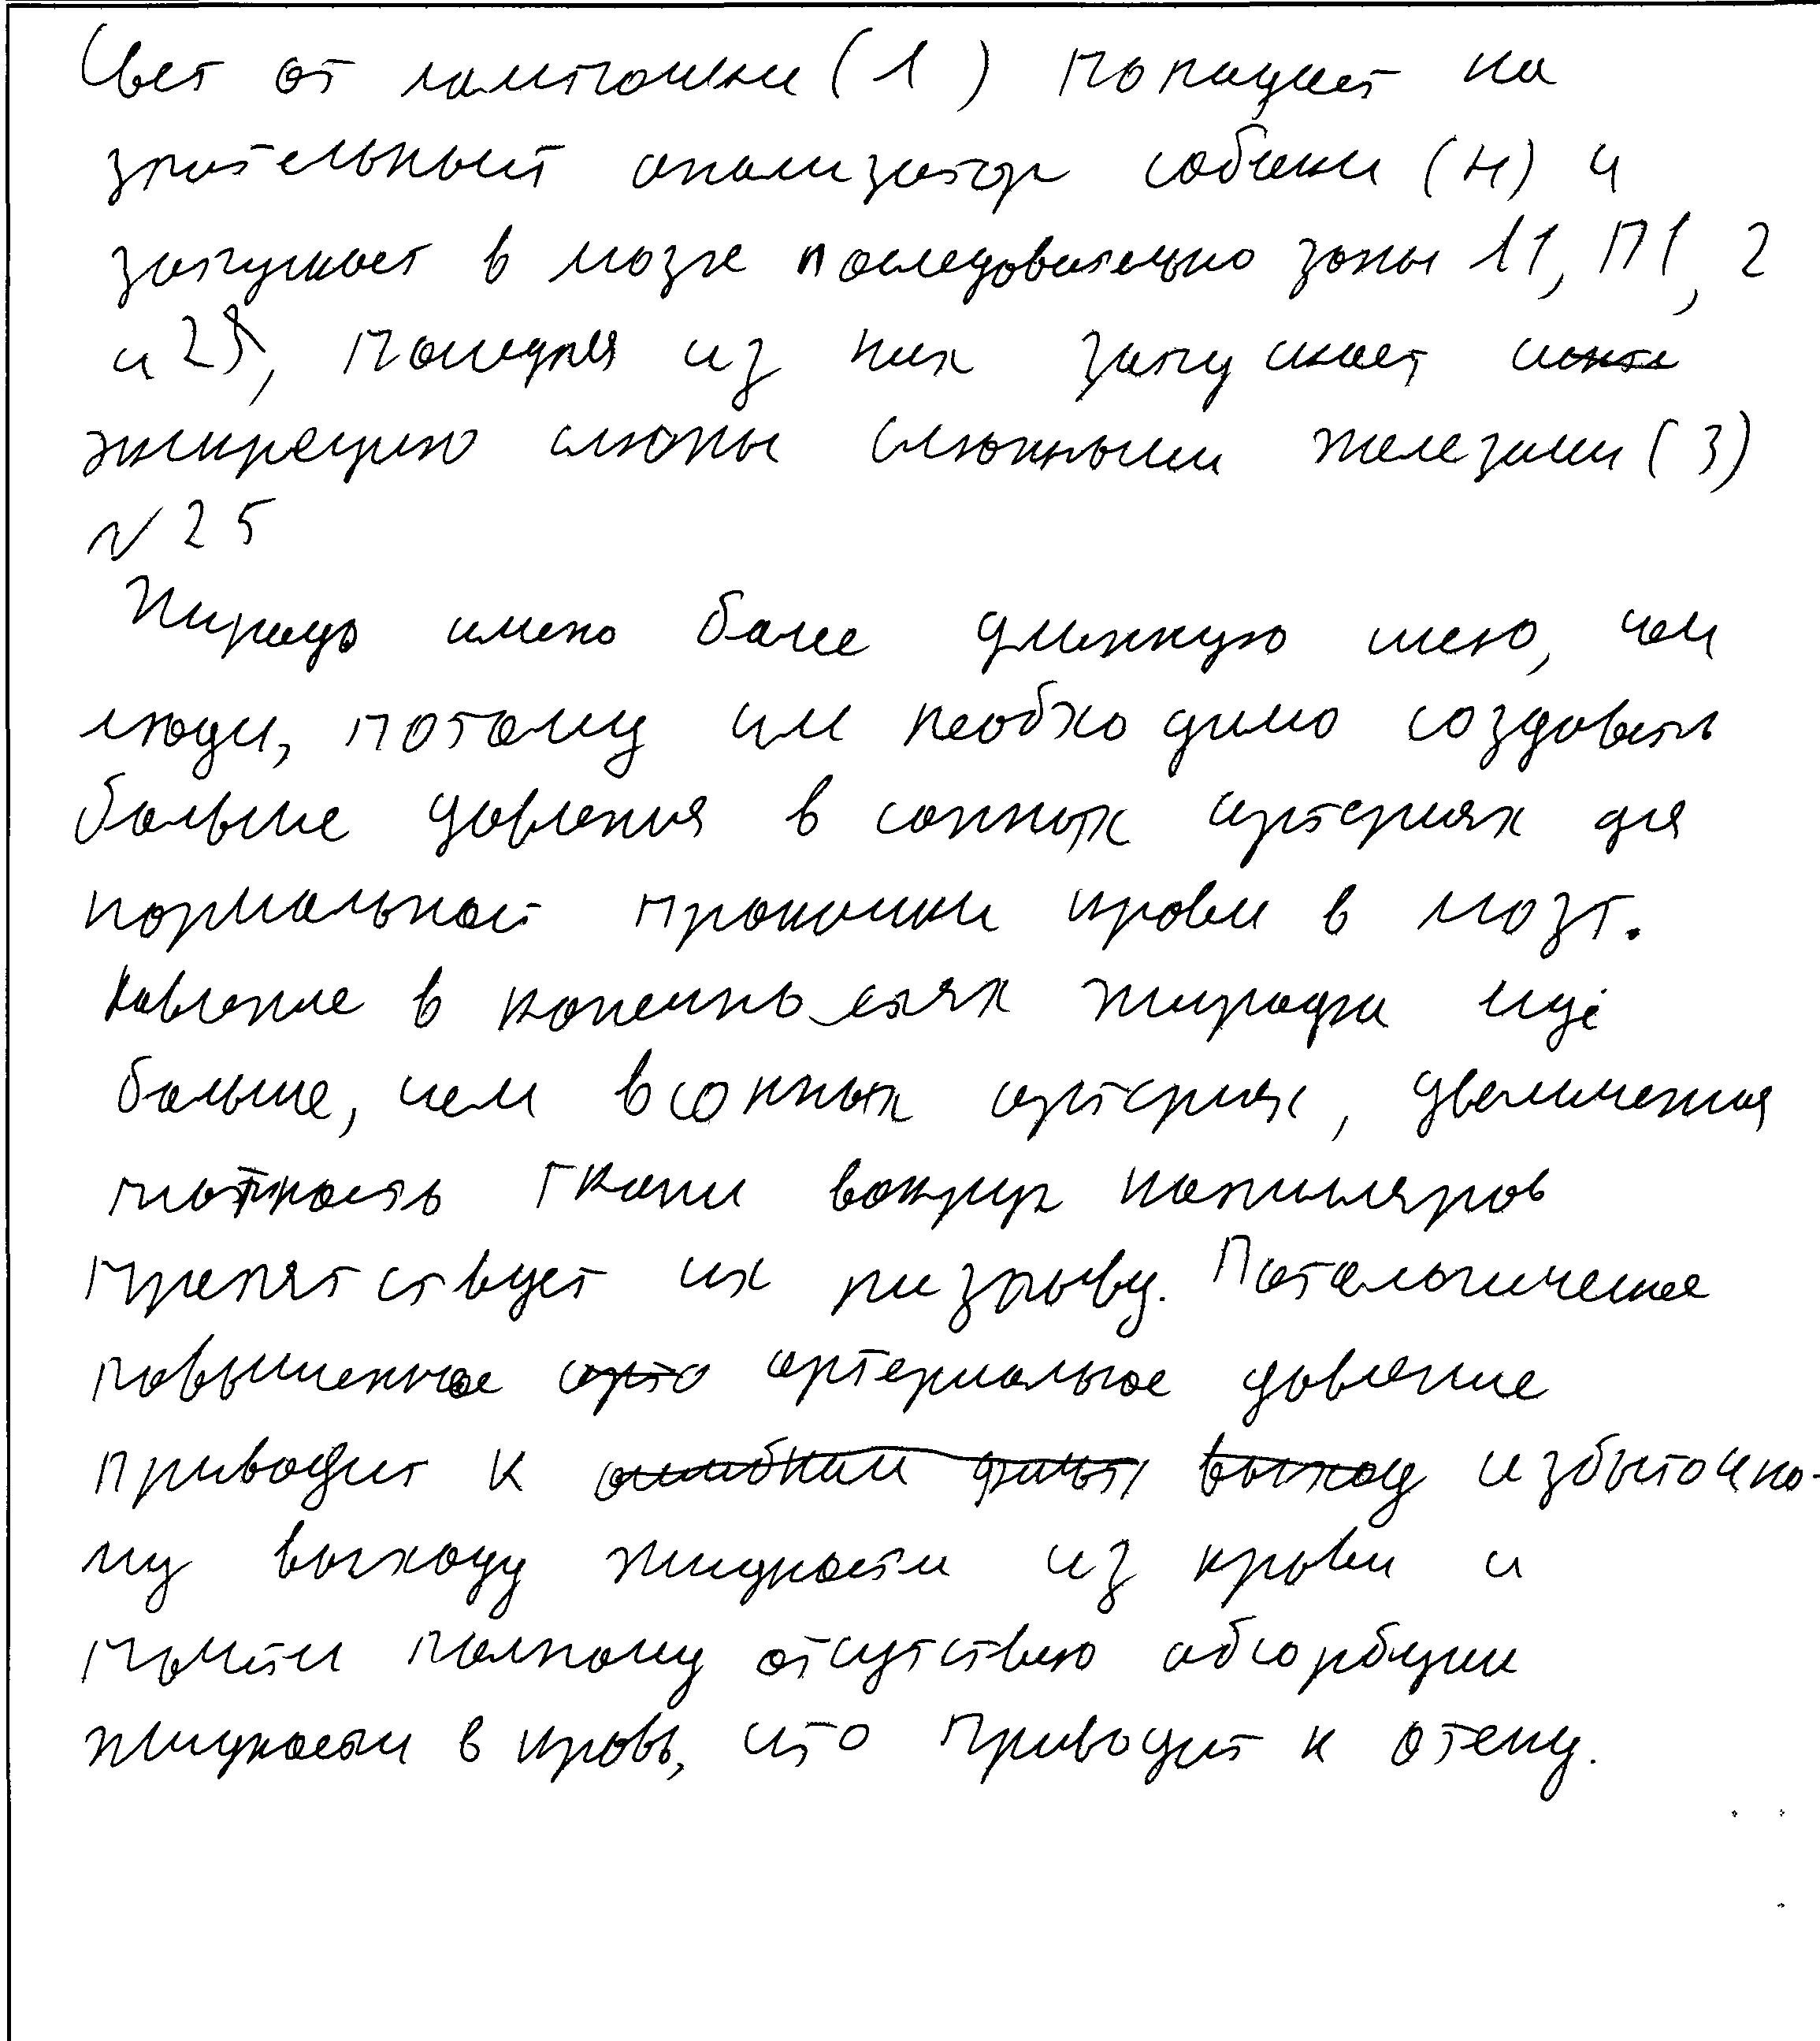 Свет от лампочки (1) попадает на
зрительный анализатор собаки (Н) и
запускает в мозге последовательно зоны 11, П1, 2
и 2, последняя из них запускает
экскрецию слюны слюнными железами (3)
№ 25
имено более длинную шею, чем
люди, потому им необходимо создовать
больше давления в сонных артериях для
нормальной прокачки крови в мозг.
Давление в конечностях жирафа ещё
больше, чем в сонных артериях, увеличения
плотность ткани вокруг капиляров
препятствует их разрыву. Патологическое
повышенное артериальное давление
приводит к избыточно-
му выходу жидкости из крови и
почти полному отсутствию абсорбции
жидкости в кровь, что приводит к отеку.